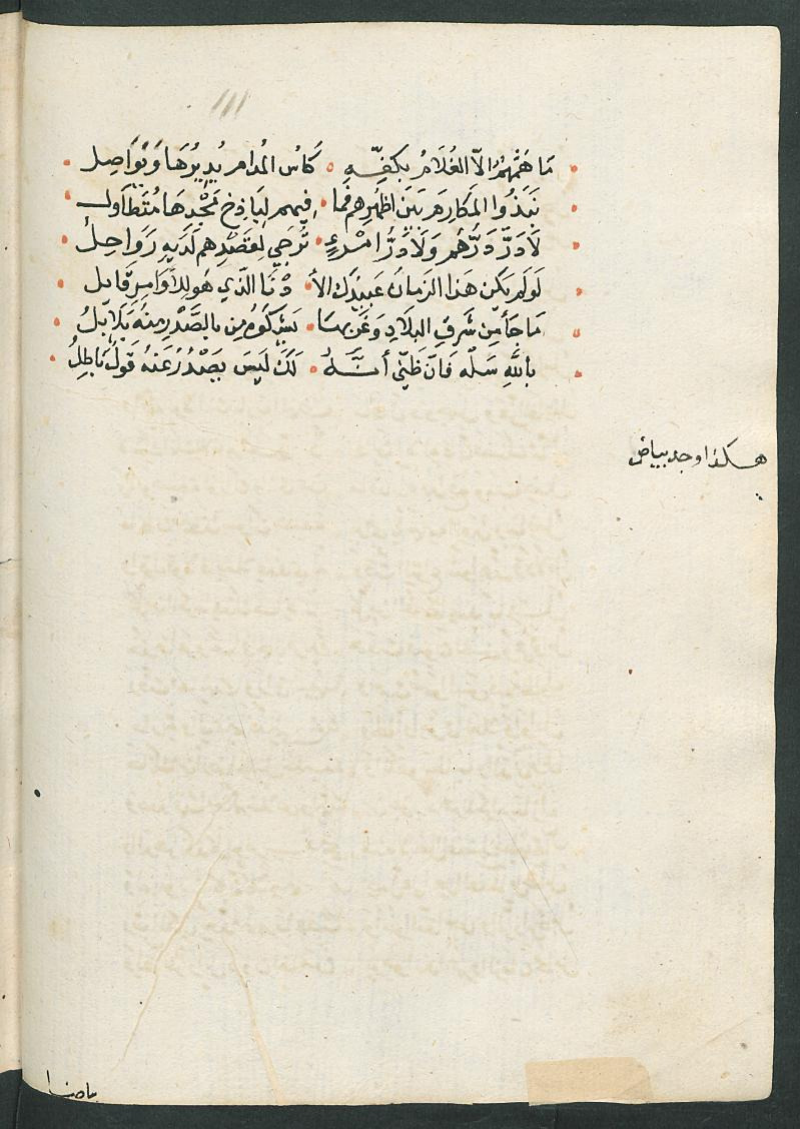 ١١١
مَا هَمُّهُمْ الَّا الغُلَامُ بكَفِّهِ كَاسُ المُدَامِ يُدِيْرُهَا وَيُوَاصِل
نَبَذُوا المَكَارِهَ بَيْنَ اظْهُرِهِم فَمَا فِيهِم لِبَاذِخِ مَجْدِهَا مُتَطَاوِل
لَا دَرَّ دَرُّهُم وَلَا دَرُّ امْرءٍ تُزْجَي لِمَقْصَدِهِم لَدَيهِ رَوَاحِلُ
لَو لَم يَكن هَذَا الزمَانُ عَبِيدَك الأ دْنَا الَّذي هُو لِلأَوَامِرِ قَابِل
مَا جَا مِن شَرقِ البِلَادِ وَغَربِهَا يَشكُوهُ مِن بِالصَّدْرِ مِنهُ بَلَابِلُ
بِاللهِ سَلْهُ فَانَّ ظَنِّي أَنَّهُ لَكَ لَيسَ يَصْدُرُ عَنهُ قَولٌ بَاطِلُ
هكذا وجد بياض